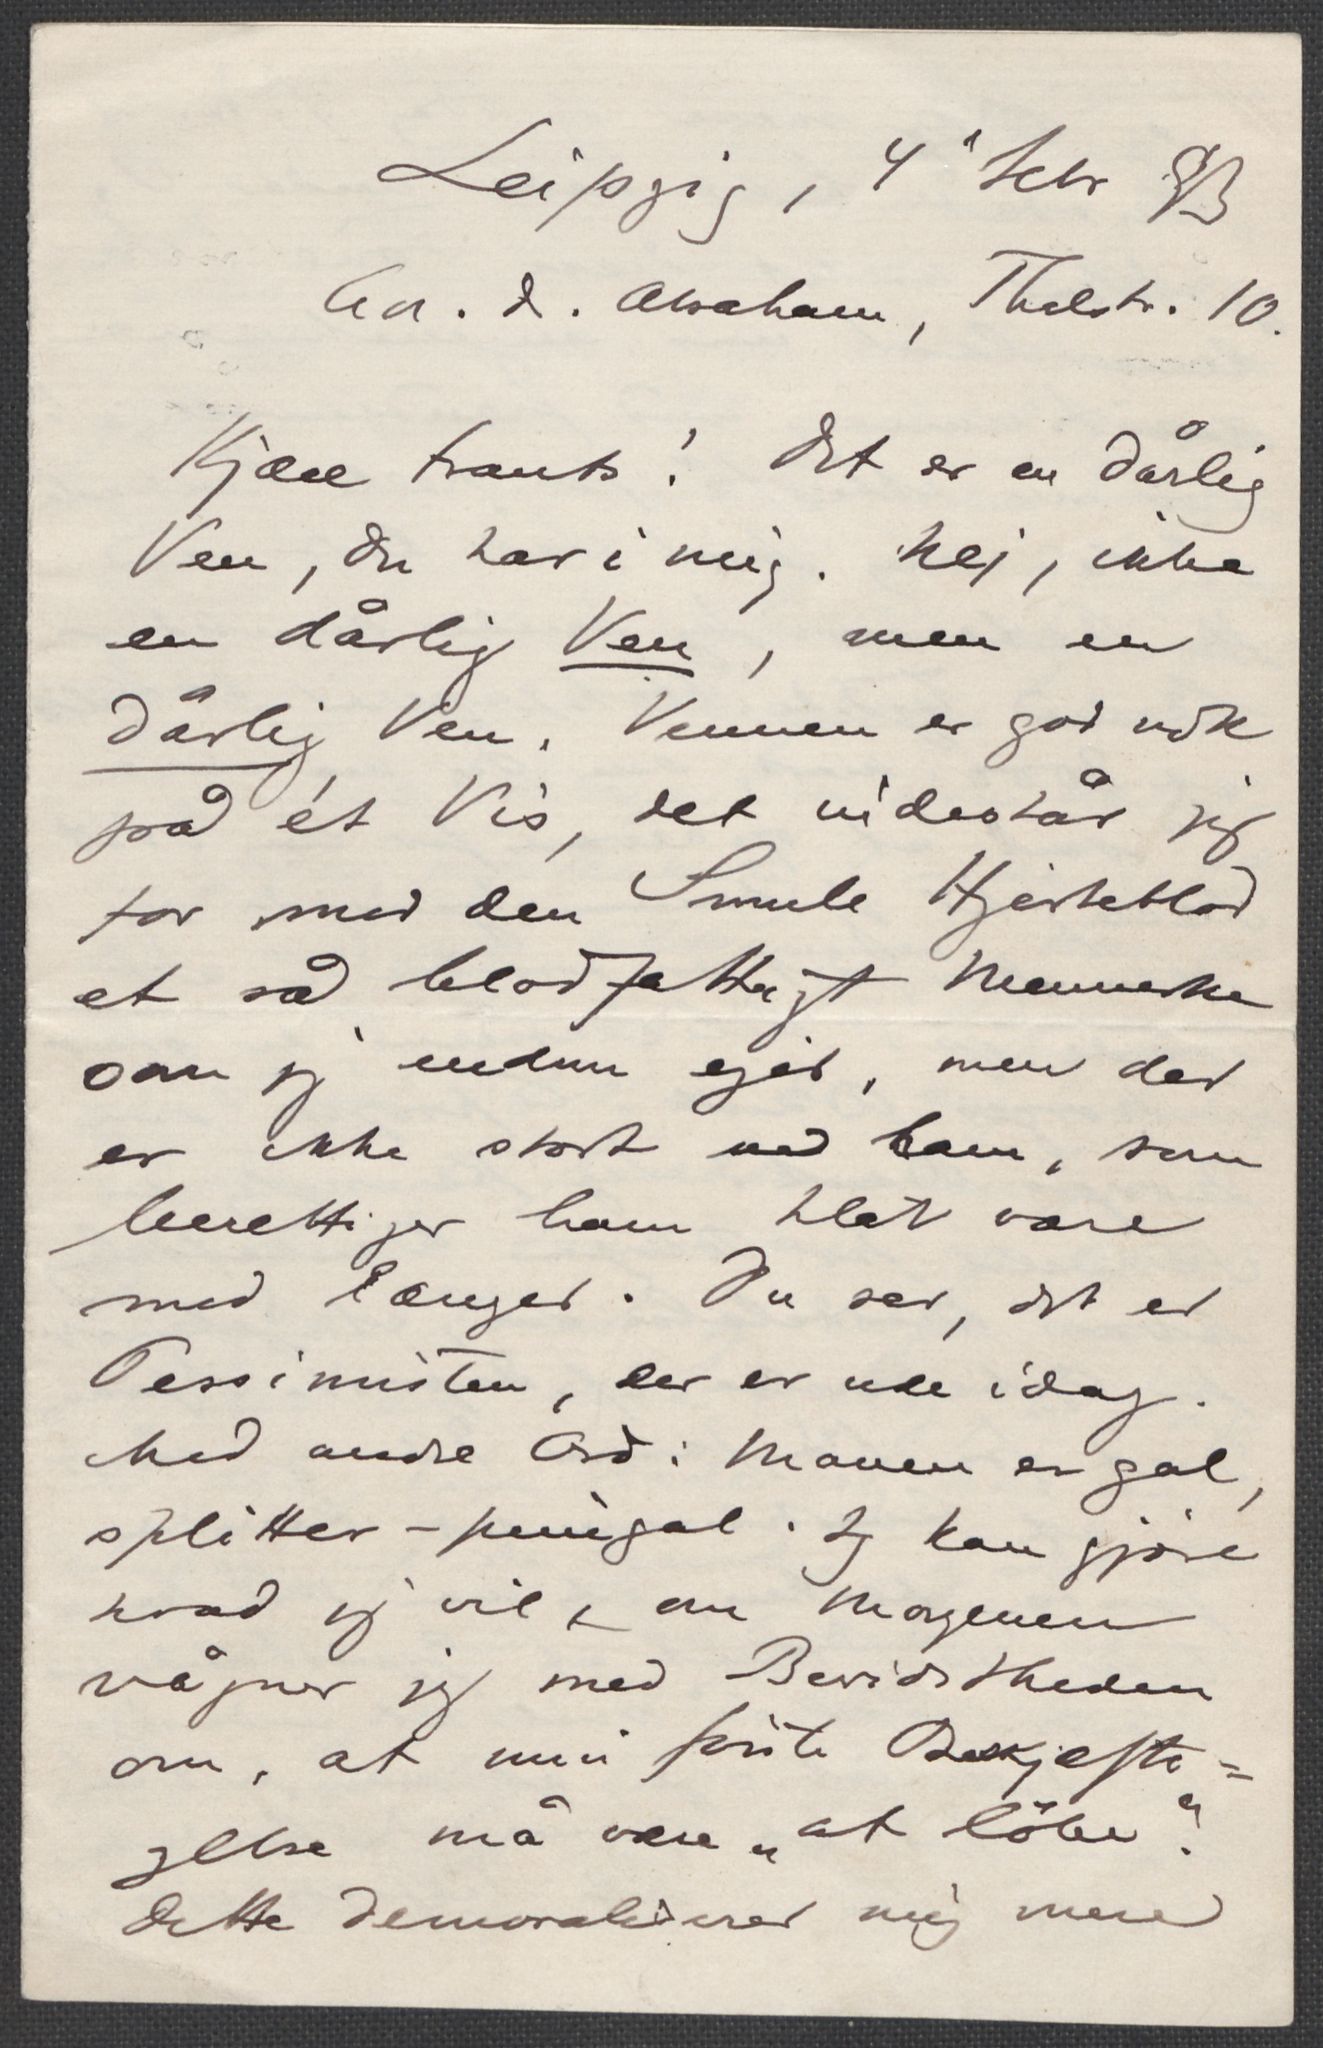 Leipzig, 4' Febr 93
Adr. Dr. Abraham, Thalstr. 10.
Kjære Frants! Det er en dårlig
Ven, Du har i mig. Nej, ikke
en dårlig Ven, men en
dårlig Ven. Vennen er god nok
på ét Vis, det indestår jeg
for med den Smule Hjerteblod
et så blodfattigt Menneske
som jeg endnu ejer, men der
er ikke stort ved ham, som
berettiger ham til at være
med længer. Du ser, det er
Pessimisten, der er ude idag.
Med andre Ord: Maven er gal,
splitter-pinegal. Jeg kan gjøre
hvad jeg vil, om Morgenen
vågner jeg med Bevidstheden
om, at min første Beskjæfti=
gelse må være „at löbe".
Dette demoraliserer mig mere